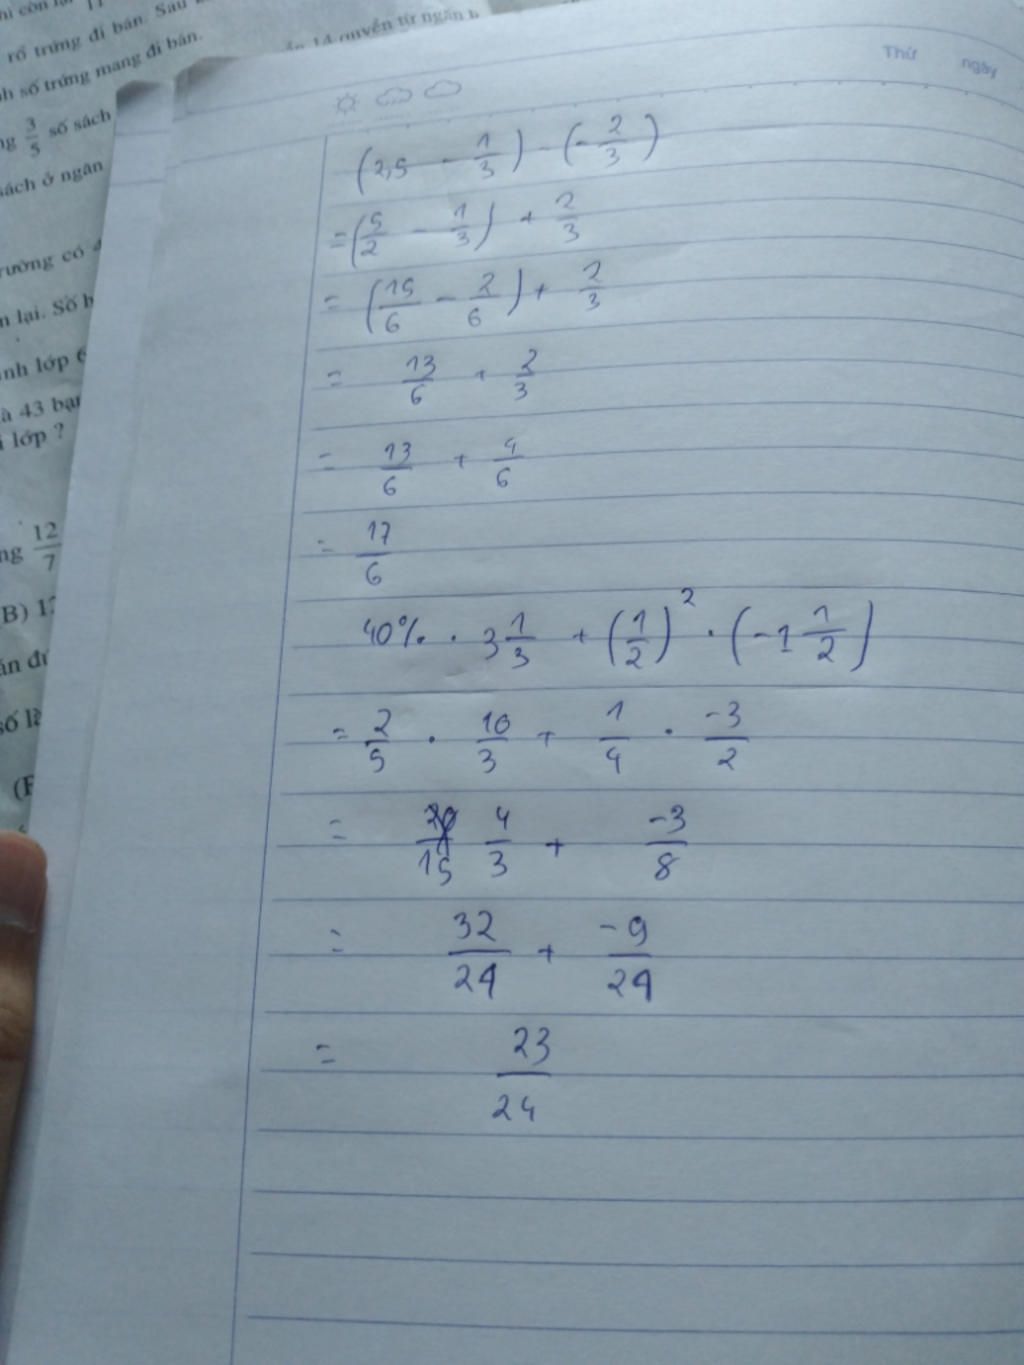 rổ trứng đi bán. Sau
số trứng mang đi bán.
14 quyển từ ngăn
3/5 số sách
sách ở ngăn
có
lại. Số
lớp 6
43 bạn
lớp ?
12/7
(B)
số là
Thứ ngày
(2,5 - 1/3) - (- 2/3)
= (5/2 - 1/3) + 2/3
= (15/6 - 2/6) + 2/3
= 13/6 + 2/3
= 13/6 + 4/6
= 17/6
40% . 3 1/3 + (1/2)² . (-1 1/2)
= 2/5 . 10/3 + 1/4 . -3/2
= 4/3 + -3/8
= 32/24 + -9/24
= 23/24